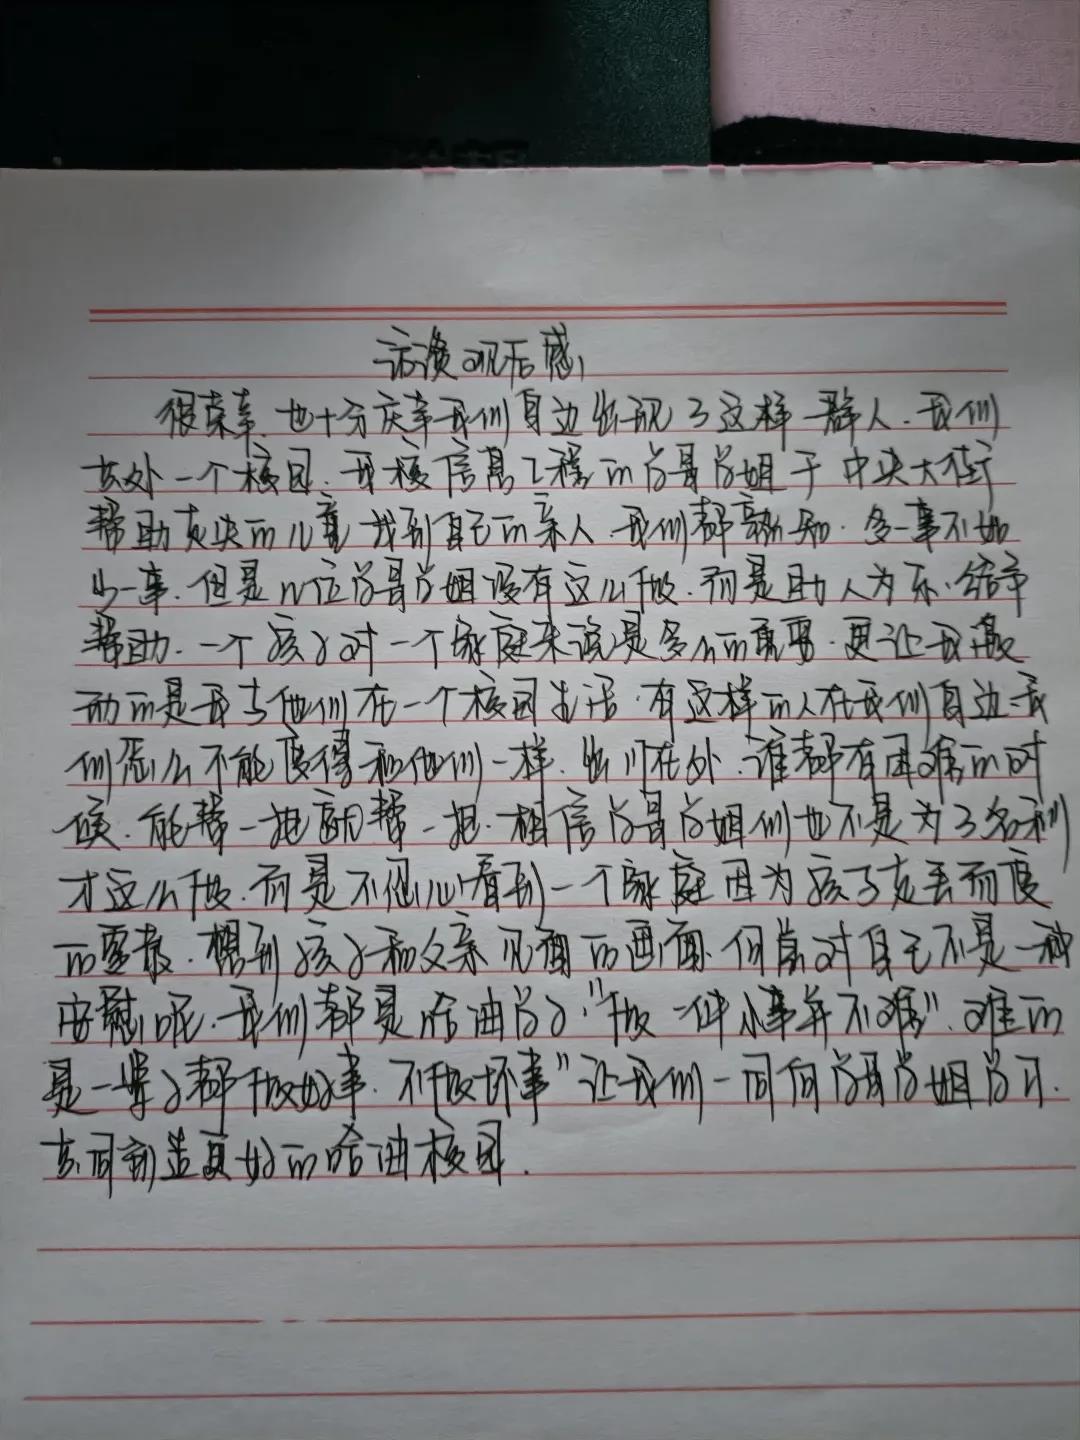 访谈观后感
很荣幸，也十分庆幸我们身边出现了这样一群人，我们
共处一个校园，我校信息工程的学哥学姐于中央大街
帮助丢失的儿童找到自己的亲人，我们都熟知，多一事不如
少一事，但是几位学哥学姐没有这么做，而是助人为乐，给予
帮助，一个孩子对一个家庭来说是多么的重要，更让我激
动的是我与他们在一个校园生活，有这样的人在我们身边，我
们怎么不能变得和他们一样，出门在外，谁都有困难的时
候，能帮一把就帮一把，相信学哥学姐们也不是为了名利
才这么做，而是不忍心看到一个家庭因为孩子走丢而变
的零散，想到孩子和父亲见面的画面，何尝对自己不是一种
安慰呢，我们都是哈油学子，"做一件小事并不难"，难的
是一辈子都做好事，不做坏事"让我们一同向学哥学姐学习，
共同创造更好的哈油校园．